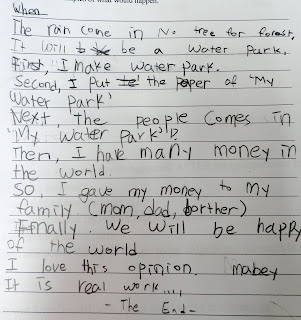 of what would happen.
When
The rain come in No tree for forest,
It will be a water park.
First, I make water park.
Second, I put the paper of 'My
Water park'
Next, The people comes in
'My water park'!?
Then, I have many money in
the world.
SO, I gave my money to my
family (mom, dad, borther)
Finally. We will be happy
of the world
I love this opinion. mabey
It is real work....
- The End-